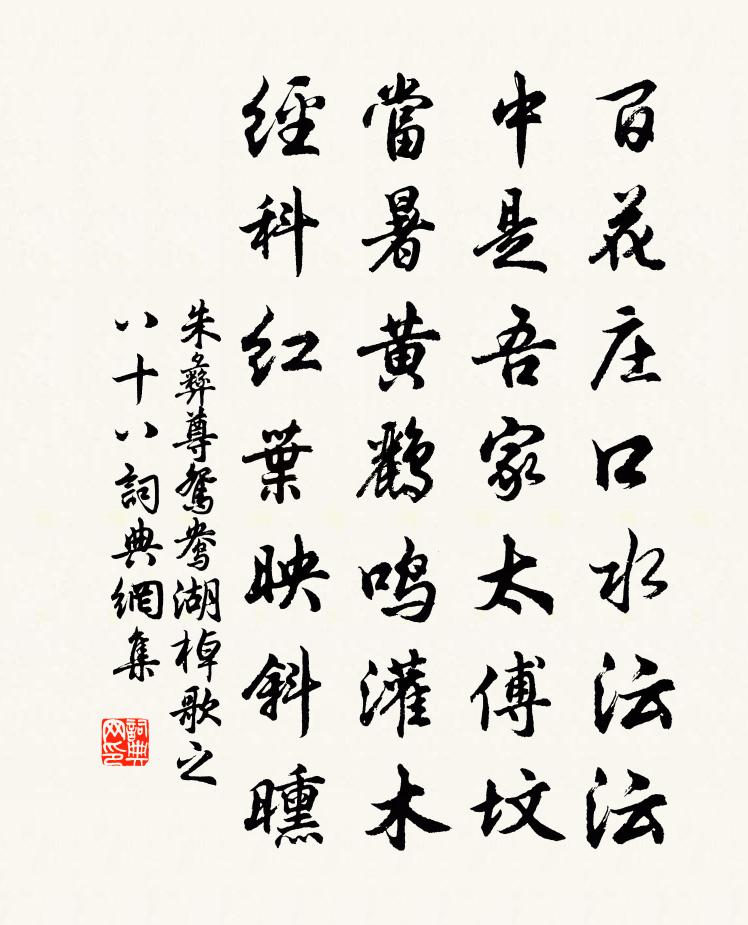 百花庄口水沄沄
中是吾家太傅坟
當暑黄鸝鸣灌木
經科红葉映斜曛
朱彝尊鴛鸯湖棹歌之
八十八詞典網集
詞典网印